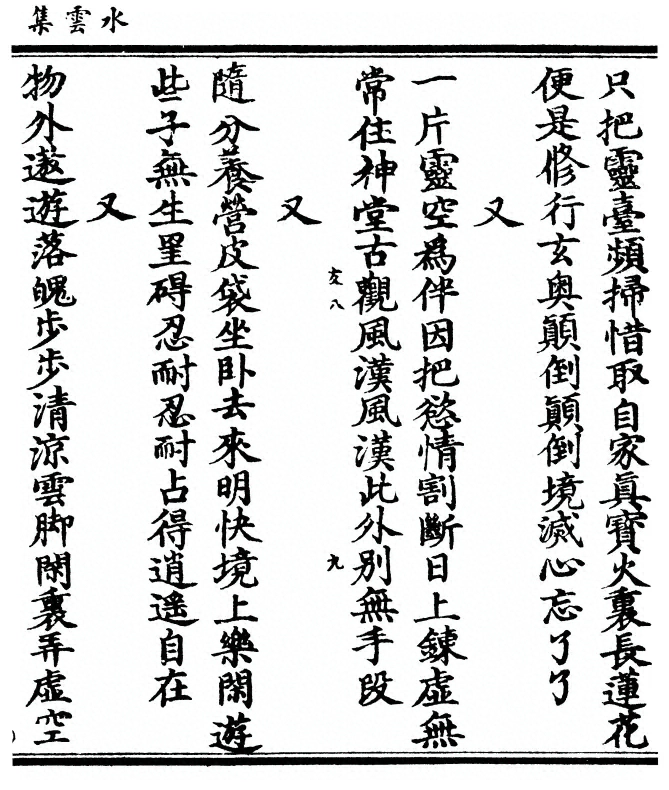 水雲集
只把靈臺頻掃惜取自家真寶火裏長蓮花
便是修行玄奧顛倒顛倒境滅心忘了了
又
一片靈空為伴因把慾情割斷日上鍊虛無
常住神堂古觀風漢風漢此外別無手段
友八
九
又
隨分養營皮袋坐臥去來明快境上樂閑遊
些子無生罣碍忍耐忍耐占得逍遙自在
又
物外遨遊落魄步步清涼雲脚閑裏弄虛空